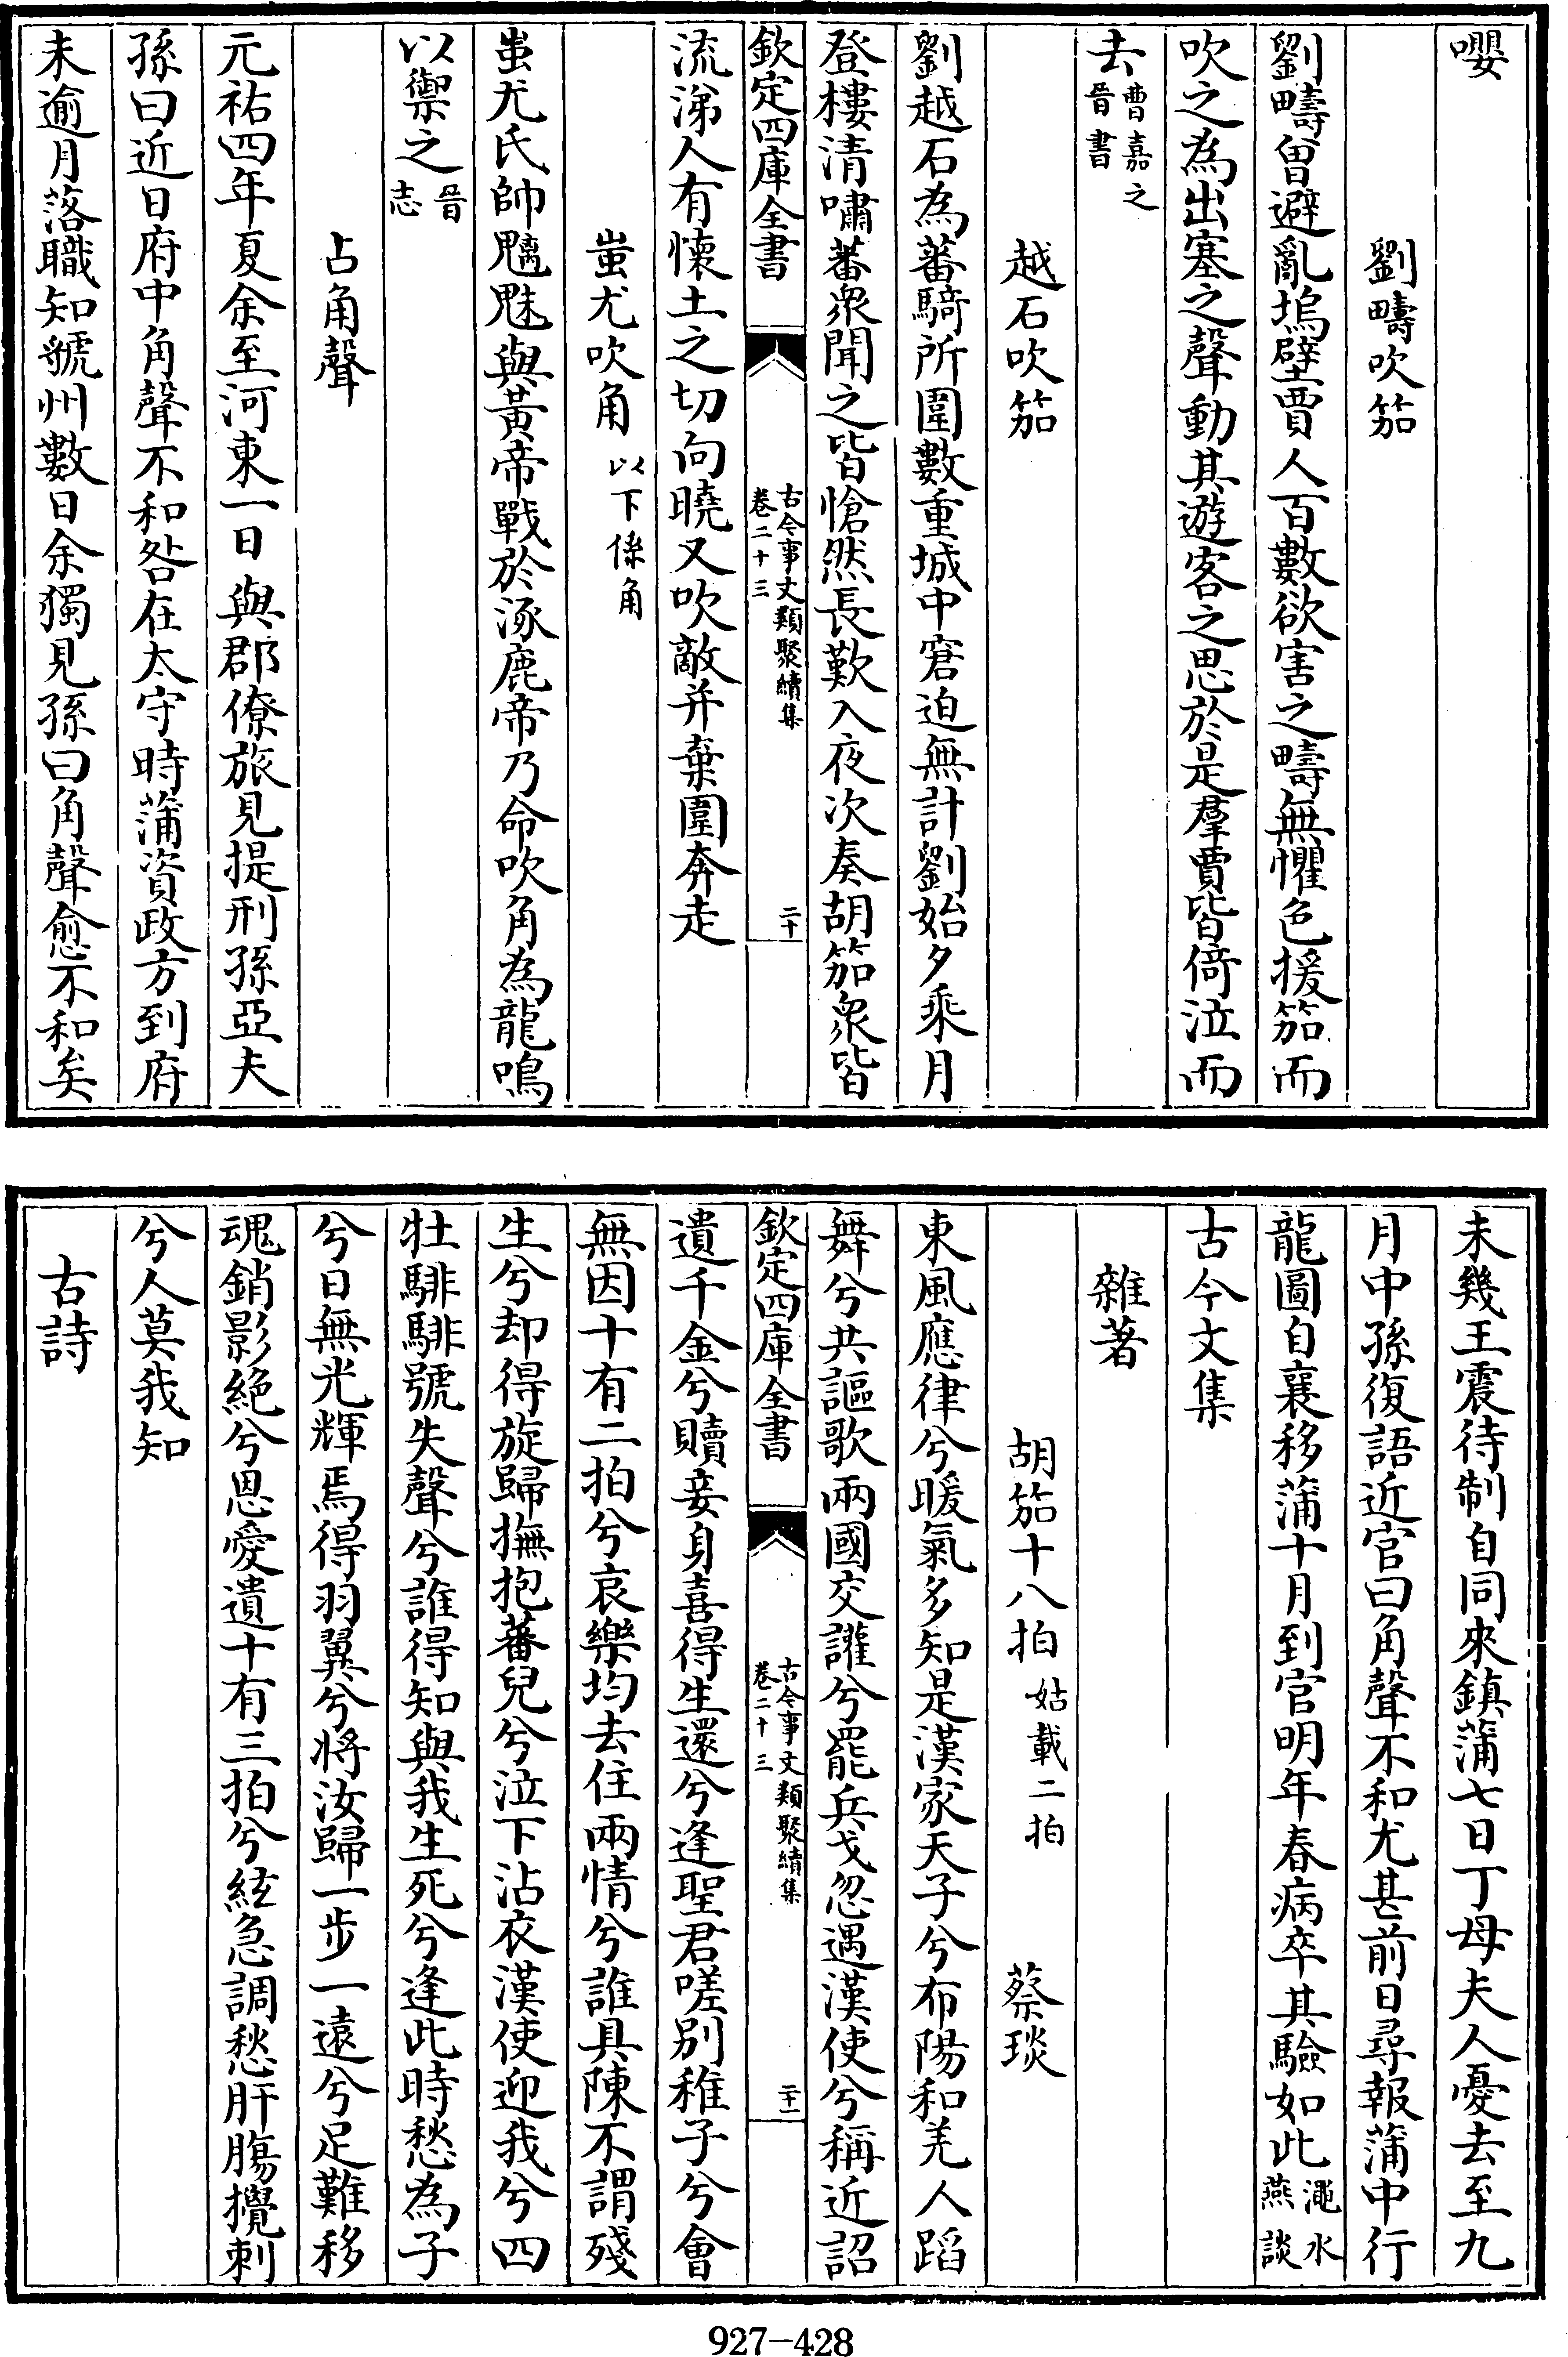 嚶
劉疇吹笳
劉疇曽避亂塢壁賈人百數欲害之疇無懼色援笳而
吹之為出塞之聲動其遊客之思於是羣賈皆倚泣而
去曹嘉之晉書
越石吹笳
劉越石為蕃騎所圍數重城中窘迫無計劉始夕乘月
登樓清嘯蕃衆聞之皆愴然長歎入夜次奏胡笳衆皆
欽定四庫全書
古今事文類聚續集
卷二十三
二十
流涕人有懐土之切向曉又吹敵并棄圍奔走
蚩尤吹角以下係角
蚩尤氏帥魑魅與黃帝戰於涿鹿帝乃命吹角為龍鳴
以禦之晉志
占角聲
元祐四年夏余至河東一日與郡僚旅見提刑孫亞夫
孫曰近日府中角聲不和咎在太守時蒲資政方到府
未逾月落職知虢州數日余獨見孫曰角聲愈不和矣
未幾王震待制自同來鎮蒲七日丁母夫人憂去至九
月中孫復語近官曰角聲不和尤甚前日尋報蒲中行
龍圖自襄移蒲十月到官明年春病卒其驗如此澠水燕談
古今文集
雜著
胡笳十八拍姑載二拍 蔡琰
東風應律兮暖氣多知是漢家天子兮布陽和羌人蹈
舞兮共謳歌兩國交讙兮罷兵戈忽遇漢使兮稱近詔
欽定四庫全書
古今事文類聚續集
卷二十三
二十一
遺千金兮贖妾身喜得生還兮逢聖君嗟别稚子兮會
無因十有二拍兮哀樂均去住兩情兮誰具陳不謂殘
生兮却得旋歸撫抱蕃兒兮泣下沾衣漢使迎我兮四
牡騑騑號失聲兮誰得知與我生死兮逢此時愁為子
兮日無光輝焉得羽翼兮將汝歸一步一遠兮足難移
魂銷影絶兮恩愛遺十有三拍兮絃急調愁肝膓攪刺
兮人莫我知
古詩
927-428